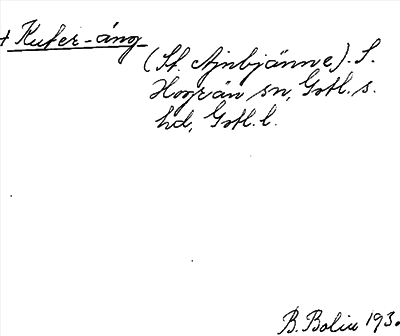 + Kufer-äng
(St. Ajnbjänne). S.
Hogrän sn, Gotl. s.
hd, Gotl. l.
B. Bolin 193.